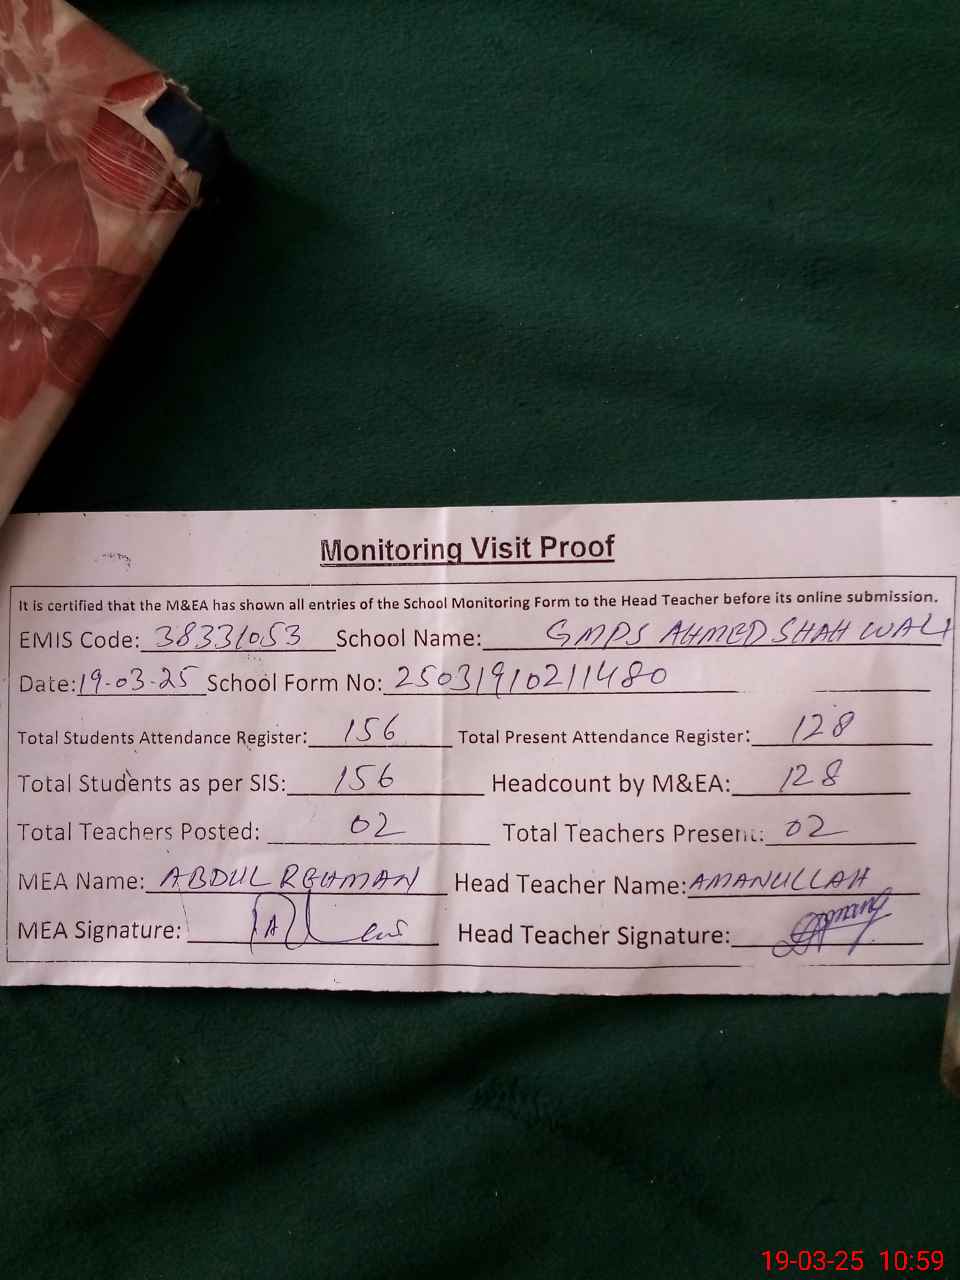 Monitoring Visit Proof
It is certified that the M&EA has shown all entries of the School Monitoring Form to the Head Teacher before its online submission.
EMIS Code: 38331053 School Name: GMPS AHMED SHAH WALI
Date: 19-03-25 School Form No: 25031910211480
Total Students Attendance Register: 156 Total Present Attendance Register: 128
Total Students as per SIS: 156 Headcount by M&EA: 128
Total Teachers Posted: 02 Total Teachers Present: 02
MEA Name: ABDUL REHMAN Head Teacher Name: AMANULLAH
MEA Signature: Head Teacher Signature:
19-03-25 10:59